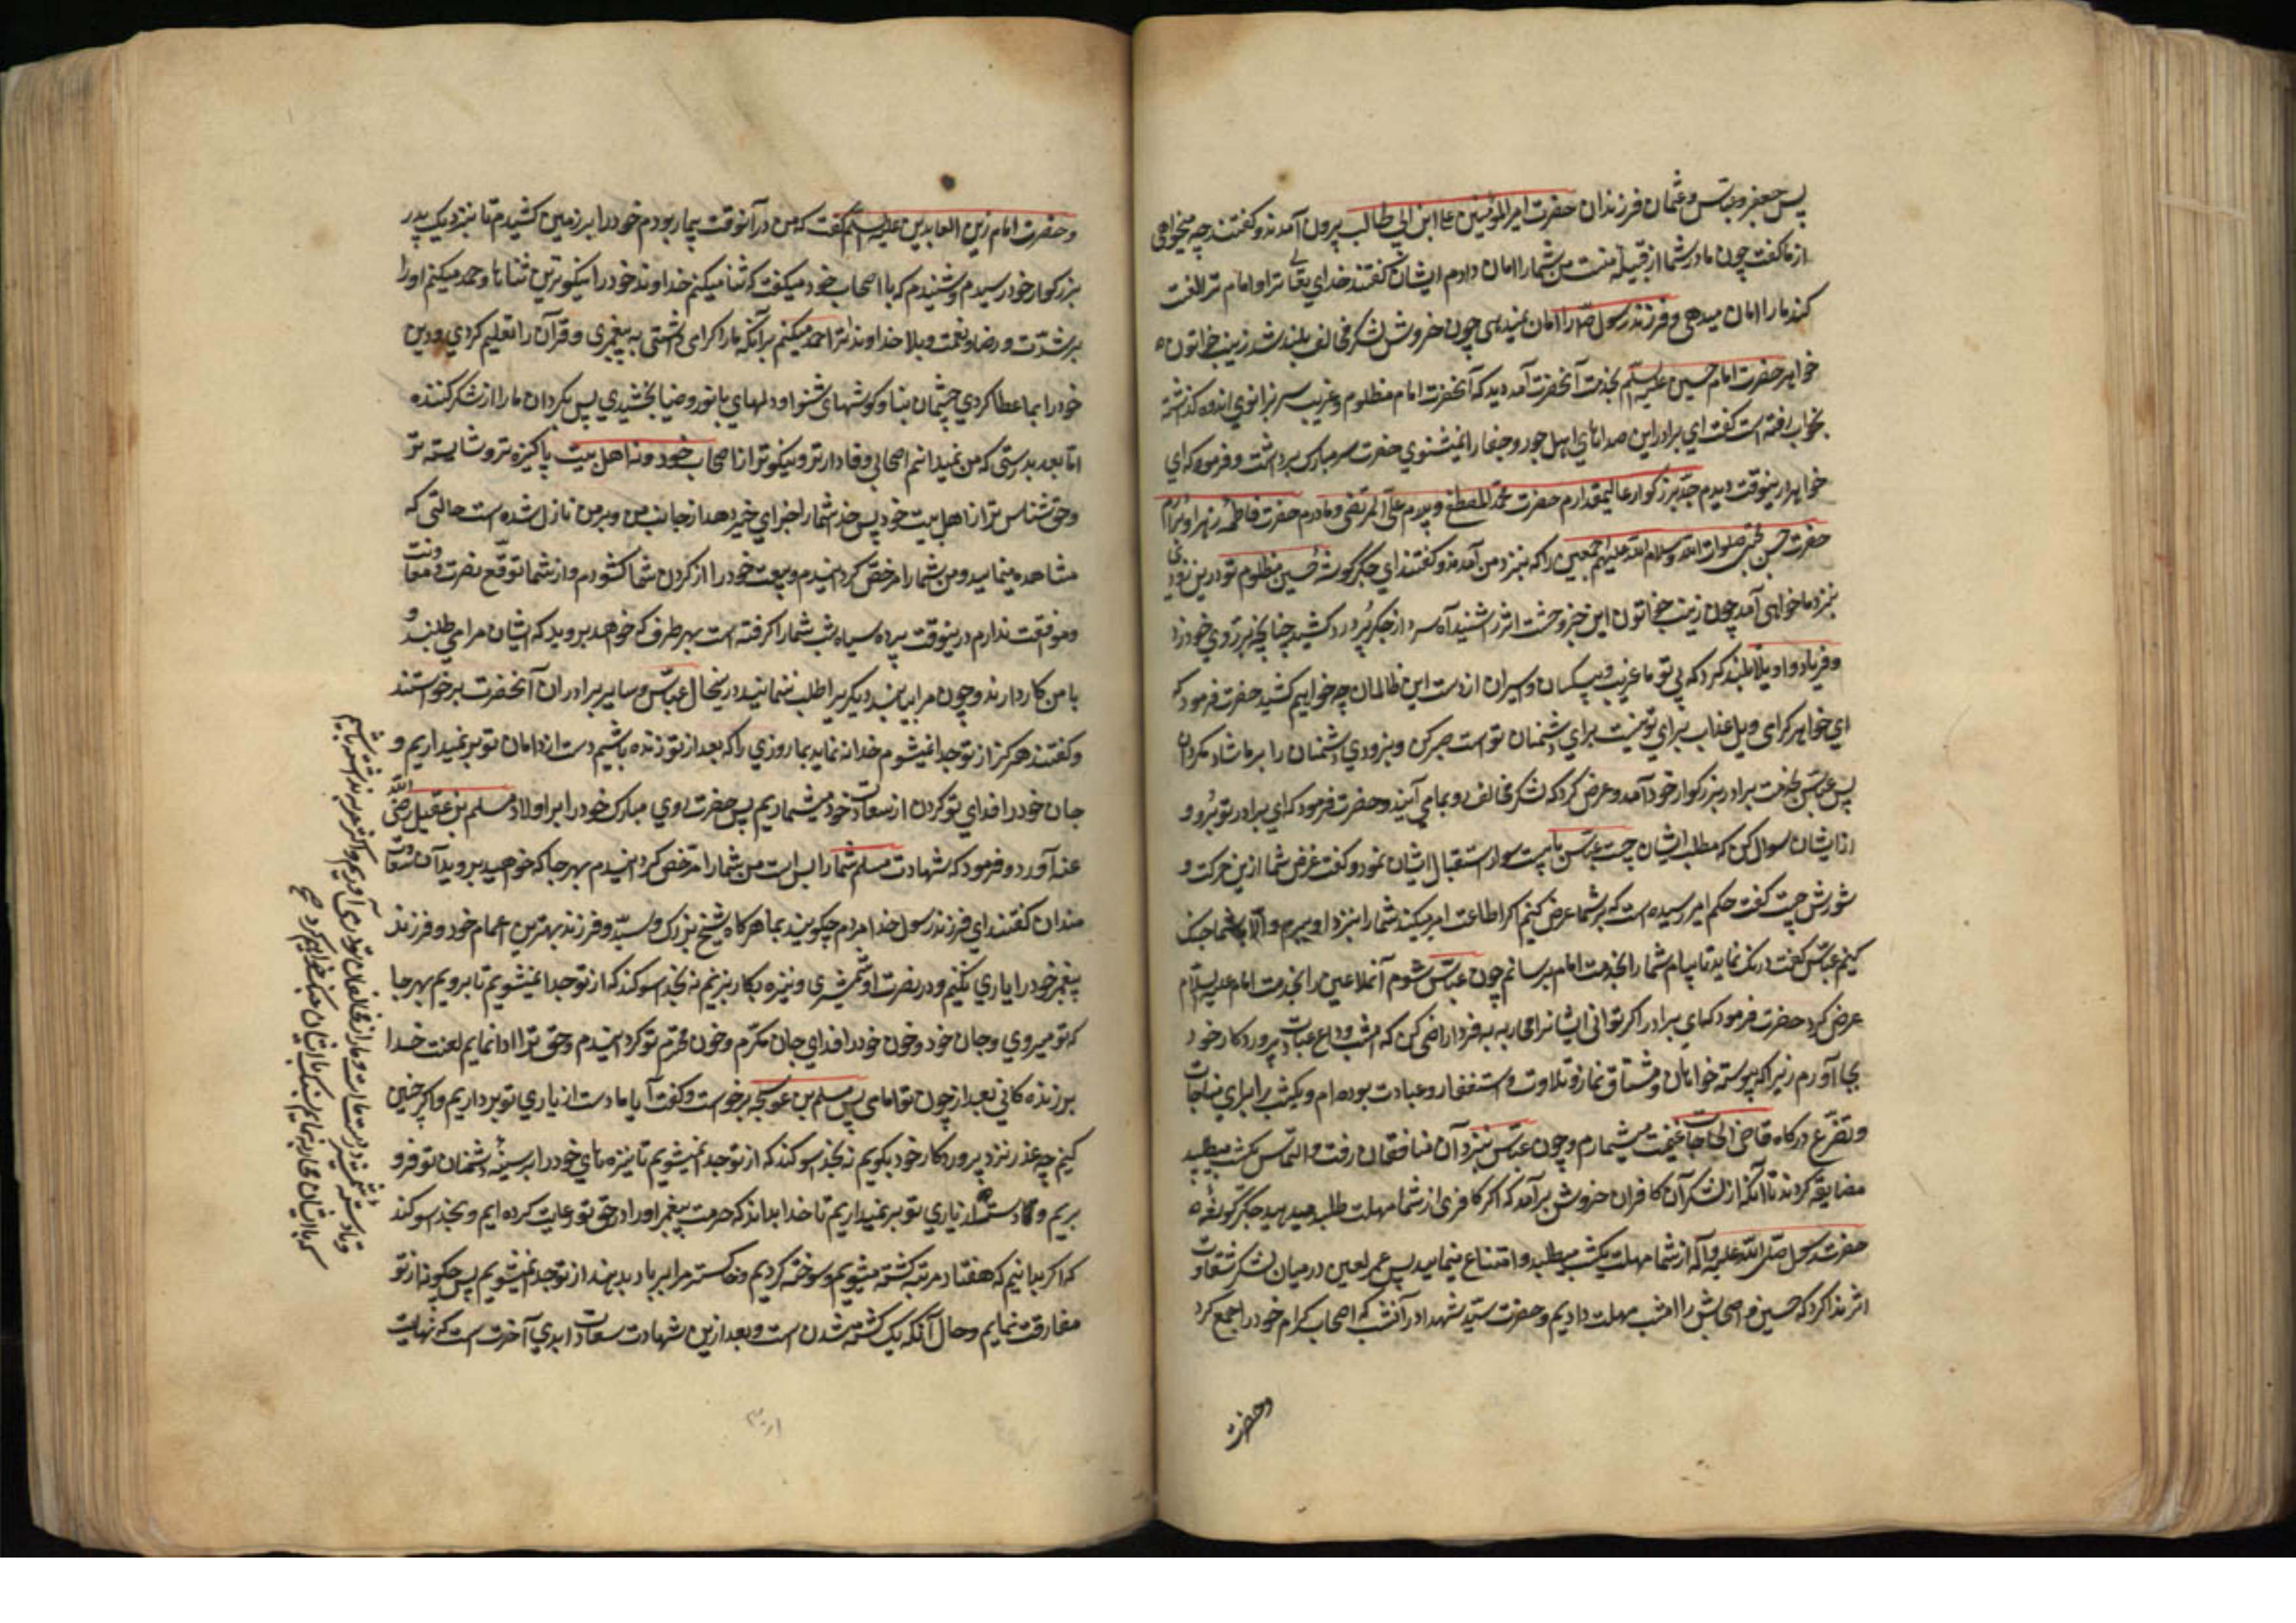 پس جعفر و عباس و عثمان فرزندان حضرت امیر المؤمنین علی ابن ابی طالب بیرون آمدند و کفتند چه میخواهی
از ما کفت چون مادر شما از قبیله منست من شما را امان دادم ایشان کفتند خدای تعالی ترا و امام ترا لعنت
کند ما را امان میدهی و فرزند رسول خدا را امان نمیدهی چون خروش لشکر مخالف بلند شد زینب خاتون
خواهر حضرت امام حسین علیه السلم بخدمت آنحضرت آمد دید که آنحضرت امام مظلوم و غریب سر بزانوی اندوه کذاشته
بخواب رفته است کفت ای برادر این صداهای اهل جور و جفا را نمیشنوی حضرت سر مبارک برداشت و فرمود که ای
خواهر درینوقت دیدم جد بزرکوار عالیمقدارم حضرت محمد المصطفی و پدرم علی المرتضی و مادرم حضرت فاطمه زهرا و برادرم
حضرت حسن مجتبی صلوات الله و سلام الله علیهم اجمعین را که بنزد من آمدند و کفتند ای جکر کوشه حسین مظلوم تو درین زودی
بنزد ما خواهی آمد چون زینب خاتون این خبر وحشت اثر شنید آه سرد از جکر پر درد کشید چنانچه بر روی خود زد
و فریاد و اویلا بلند کرد که بی تو ما غریب و بیکسان و اسیران از دست این ظالمان چه خواهیم کشید حضرت فرمود که
ای خواهر کرامی ویل عذاب برای تو نیست برای دشمنان تو است صبر کن و بزودی دشمنان را بر ما شاد مکردان
پس عباس بخدمت برادر بزرکوار خود آمد و عرض کرد که لشکر مخالف رو بما می آیند و حضرت فرمود که ای برادر تو برو و
از ایشان سوال کن که مطلب ایشان چیست عباس با بیست سوار استقبال ایشان نمود و کفت غرض شما ازین حرکت و
شورش چیست کفت حکم امیر رسیده است که بر شما عرض کنیم اکر اطاعت امر میکنید شما را بنزد او بریم و الا با شما جنک
کنیم عباس کفت درنک نماید تا پیام شما را بخدمت امام برسانم چون عباس شوم آنملاعین را بخدمت امام علیه السلام
عرض کرد حضرت فرمود که ای برادر اکر توانی ایشانرا محاربه بفردا راضی کن که امشب وداع عبادت پروردکار خود
بجا آورم زیرا که پیوسته خواهان و مشتاق نماز و تلاوت و استغفار و عبادت بوده ام و یکشب را برای مناجات
و تضرع درکاه قاضی الحاجات غنیمت میشمارم و چون عباس بنزد آن منافقان رفت و التماس یکشب میطلبید
مضایقه کردند تا آنکه از لشکر آن کافران خروش برآمد که اکر کافری از شما مهلت طلبد میدهید جکر کوشه
حضرت رسول صلی الله علیه و آله از شما مهلت یکشب میطلبد و امتناع مینمایید پس عمر لعین در میان لشکر شقاوت
اثر ندا کرد که حسین و اصحابش را امشب مهلت دادیم و حضرت سید شهدا در آنشب که اصحاب کرام خود را جمع کرد
و حضرت
و حضرت امام زین العابدین علیه السلم کفت که من در آنوقت بیمار بودم خود را بر زمین کشیدم تا بنزدیک پدر
بزرکوار خود رسیدم و شنیدم که با اصحاب خود میکفت که ثنا میکنم خداوند خود را نیکوترین ثناها و حمد میکنم او را
بر شدت و رضا و نعمت و بلا خداوندا ترا حمد میکنم بر آنکه ما را کرامی داشتی به پیغمبری و قرآن را تعلیم کردی و دین
خود را بما عطا کردی چشمان بینا و کوشهای شنوا و دلهای با نور و ضیا بخشیدی پس بکردان ما را از شکر کننده
اما بعد بدرستی که من نمیدانم اصحابی وفادارتر و نیکوتر از اصحاب خود و نه اهل بیت پاکیزه تر و شایسته تر
و حق شناس تر از اهل بیت خود پس خدا شما را جزای خیر دهد از جانب من و بر من نازل شده است حالتی که
مشاهده مینمایید و من شما را مرخص کردانیدم و بیعت خود را از کردن شما کشودم و از شما توقع نصرت و معاونت
و موافقت ندارم درینوقت پرده سیاه شب شما را کرفته است بهر طرف که خواهید بروید که ایشان مرا می طلبند و
با من کار دارند و چون مرا بیابند دیکریرا طلب ننمایند درینحال عباس و سایر برادران آنحضرت برخواستند
و کفتند هرکز از تو جدا نمیشویم خدا ننماید بما روزی را که بعد از تو زنده باشیم دست از دامان تو بر نمیداریم و
جان خود را فدای تو کردن از سعادت خود میشماریم پس حضرت روی مبارک خود را بر اولاد مسلم بن عقیل رضی الله
عنه آورد و فرمود که شهادت مسلم شما را بس است من شما را مرخص کردانیدم بهر جا که خواهید بروید آن سعادت
مندان کفتند ای فرزند رسول خدا مردم چکویند بما هرکاه شیخ بزرک و سید و فرزند بهترین اعمام خود و فرزند
پیغمبر خود را یاری نکنیم و در نصرت او شمشیری و نیزه بکار نبریم نه بخدا سوکند که از تو جدا نمیشویم تا برویم بهر جا
که تو میروی و جان خود و خون خود را فدای جان مکرم و خون محترم تو کردانیدم و حق ترا ادا نمایم لعنت خدا
بر زنده کانی بعد از چون تو امامی پس مسلم بن عوسجه برخواست و کفت آیا ما دست از یاری تو برداریم و اکر چنین
کنیم چه عذر نزد پروردکار خود بکویم نه بخدا سوکند که از تو جدا نمیشویم تا نیزه های خود را بر سینه دشمنان تو فرو
بریم و دست از یاری تو بر نمیداریم تا خدا بداند که حرمت پیغمبر او را در حق تو رعایت کرده ایم و بخدا سوکند
که اکر بدانیم که هفتاد مرتبه کشته میشویم و سوخته کردیم و خاکستر مرا بر باد بدهند از تو جدا نمیشویم پس چکونه از تو
مفارقت نمایم و حال آنکه یک کشته شدن است و بعد ازین شهادت سعادت ابدی آخرت است که نهایت
و تا دسته شمشیر در دست ما است دمار از مخالفان تو بدر می آوریم و اکر حربه نداشته باشیم
که با ایشان محاربه نمایم بسنک با ایشان جنک خواهیم کرد صح